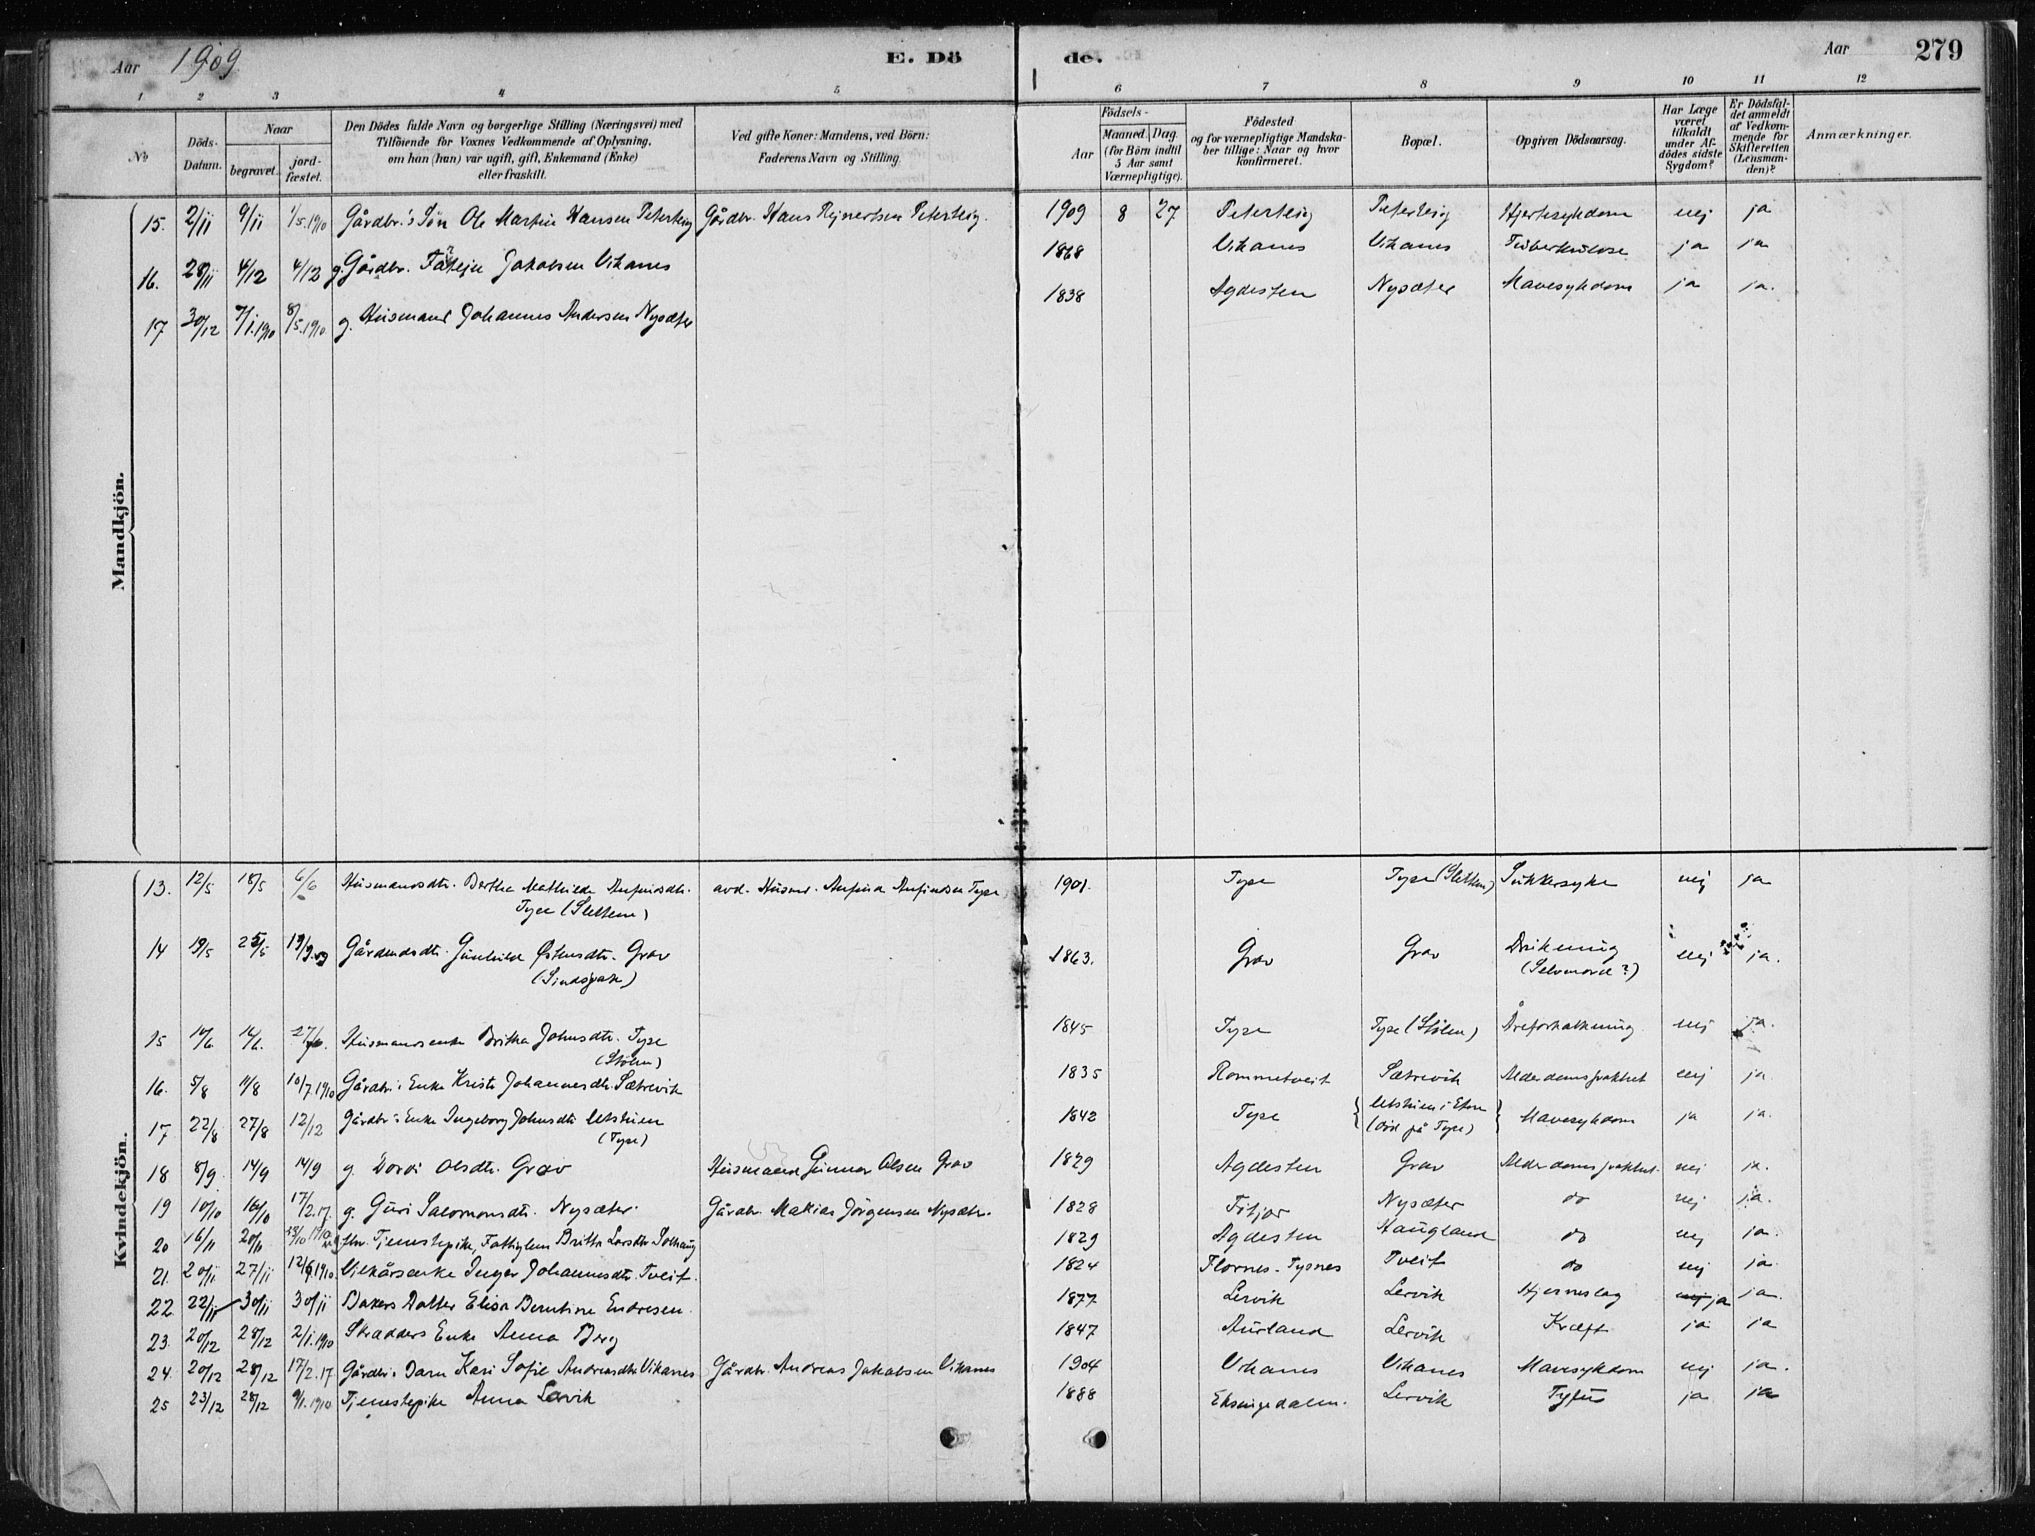 Aar 1909. E. Dö de. Aar 279
1 2 3 4 5 6 7 8 9 10 11 12
No
Döds-Datum.
Naar
begravet.
jord-fæstet.
Den Dödes fulde Navn og borgerlige Stilling (Næringsvei) med
Tilföiende for Voxnes Vedkommende af Oplysning,
om han (hun) var ugift, gift, Enkemand (Enke)
eller fraskilt.
Ved gifte Koner: Mandens, ved Börn:
Faderens Navn og Stilling.
Födsels-
Aar
Maaned. Dag.
(for Börn indtil
5 Aar samt
Værnepligtige).
Födested
og for værnepligtige Mandska-
ber tillige: Naar og hvor
konfirmeret.
Bopæl.
Opgiven Dödsaarsag.
Har Læge
været
tilkaldt
under Af-
dödes sidste
Sygdom?
Er Dödsfal-
det anmeldt
af Vedkom-
mende for
Skifteretten
(Lensman-
den)?
Anmærkninger.
Mandkjön.
15. 2/11 9/11 1/5.1910 Gårdbr.'s Søn Ole Martin Hansen Peterteig Gårdbr. Hans Rejnertsen Peterteig. 1909 8 27 Peterteig Peterteig Hjertesykdom nej ja
16. 28/11 4/12 4/12 g. Gårdbr. Jakobsen Vikanes 1868 Vikanes Vikanes Tuberkulose ja ja
17 30/12 7/1.1910 8/5.1910 g. Husmand Johannes Andersen Nysæter 1838 Agdesten Nysæter Mavesykdom ja ja.
Kvindekjön.
13. 12/5 18/5 6/6 Husmandsdtr. Bertha Mathilde Anfinsdtr. avd. Husm. Anfind Anfindsen Tyse 1901. Tyse Tyse (Sletten) Sukkersyke nej ja
Tyse (Sletten)
14 19/5 25/5 19/9.09 Gårdmdsdtr. Gunhild Østensdtr. Grov 1863. Grov Grov Drukning nej ja.
(Sindsyk) (Selvmord?)
15 10/6 16/6. 27/6. Husmandsenke Britha Johnsdtr. Tyse 1845 Tyse Tyse (Stølen) Åreforkalkning nej ja.
(Stølen)
16. 5/8 11/8 10/7.1910 Gårdbr.s Enke Kristi Johannesdtr. Sætrevik 1835 Rommetveit Sætrevik Alderdomssvakhet nej ja.
17 22/8 27/8 12/12 Gårdbr.'s Enke Ingeborg Johnsdtr. 1842 Tyse i Etne Mavesykdom ja ja.
(Tyse) (død på Tyse)
18 8/9. 14/9 14/9 g. Dordi Olsdtr. Grov Husmand Gunnar Olsen Grov 1829 Agdesten Grov Alderdomssvakhet. nej ja.
19 10/10 16/10 17/2.17. g. Guri Salomonsdtr. Nysæter. Gårdbr. Matias Jørgensen Nysæter. 1828 Fitjar Nysæter do nej ja.
20 16/11 20/11 Tjenestepike, Fattiglem Britha Larsdtr. Solhaug 1829 Agdesten Haugland do nej ja.
21. 20/11 27/11 12/6.1910 Vilkårsenke Inger Johannesdtr. Tveit. 1824 Flornes - Tysnes Tveit do nej ja.
22. 22/11 30/11 30/11 Bakers Datter Elisa Berntine Endresen 1877 Lervik Lervik Hjerneslag nej ja ja.
23. 20/12 28/12 2/1.1910 Skrædders Enke Anna Berg 1847 Aurland Lervik Kræft ja ja
24. 20/12 28/12 17/2.17 Gårdbr.s Barn Kari Sofie Andreasdtr. Vikanes Gårdbr. Andreas Jakobsen Vikanes 1904 Vikanes Vikanes Mavesykdom nej ja.
25 23/12 28/12 9/1.1910 Tjenestepike Anna Lervik 1888 Eksingedalen. Lervik Tyfus ja ja